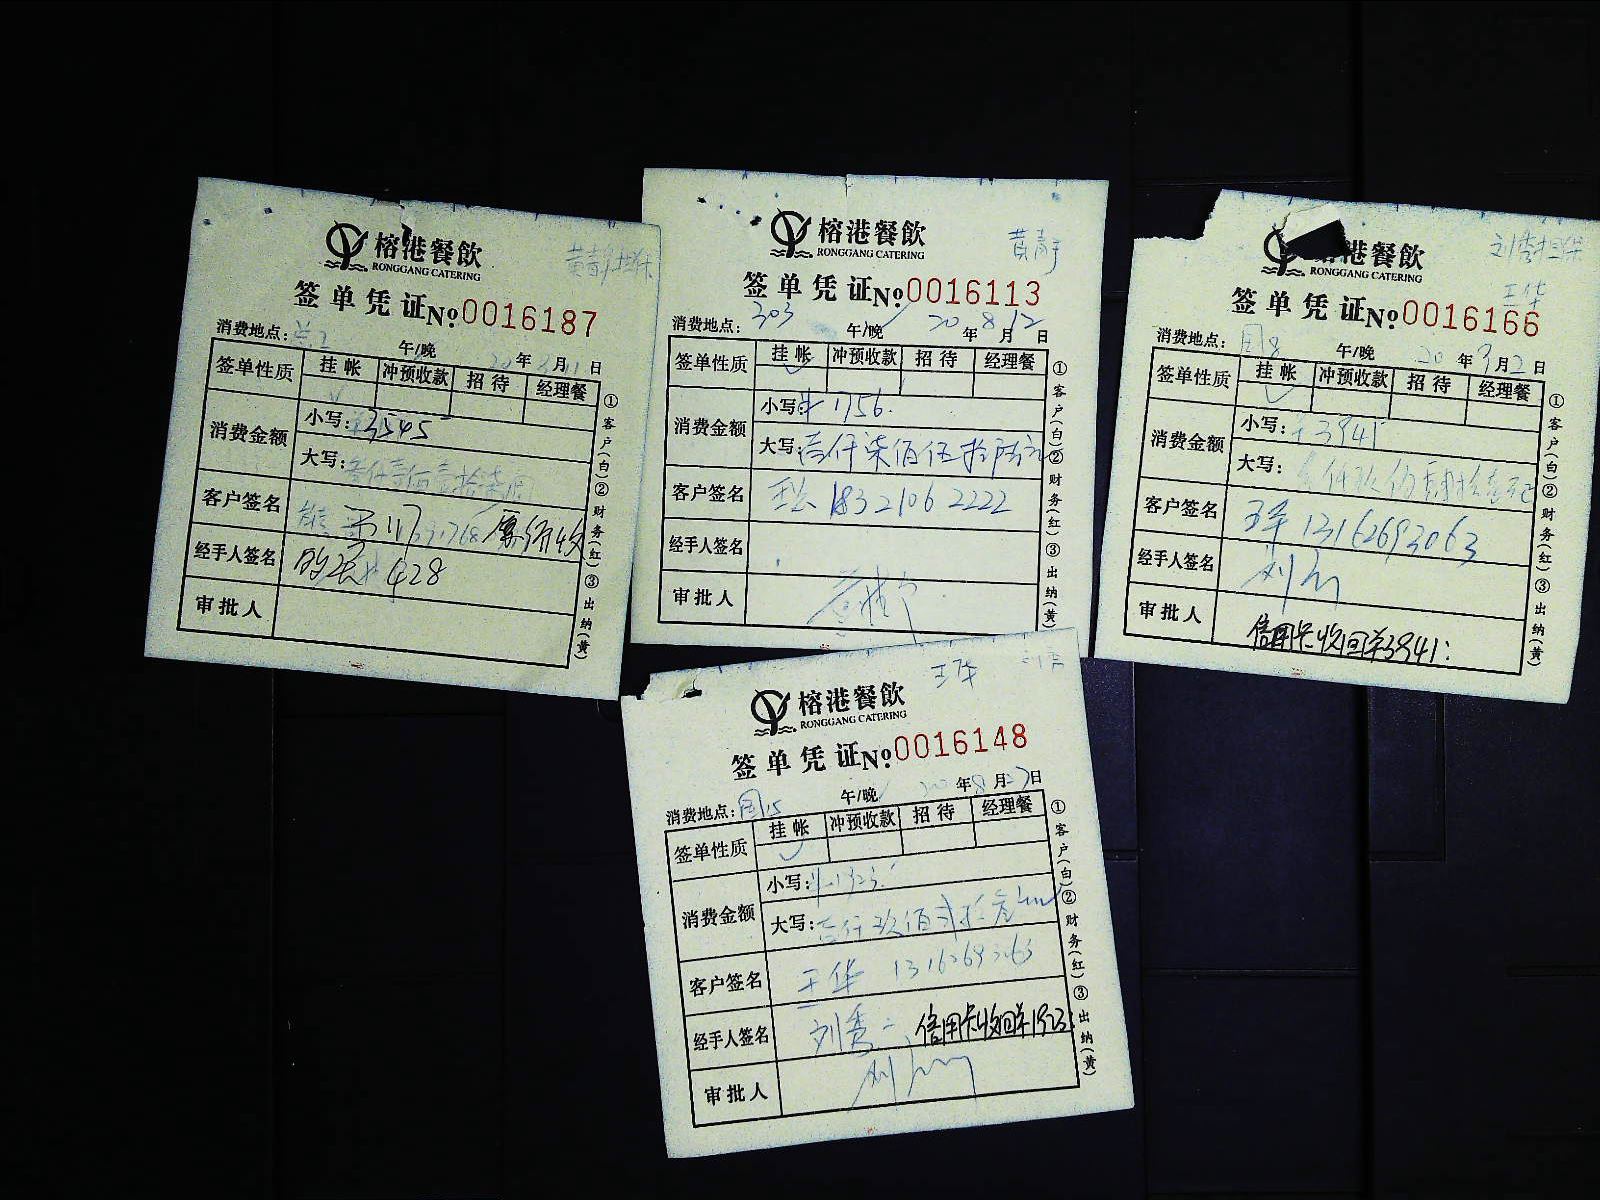 榕港餐飲
RONGGANG CATERING
签单凭证№0016187
消费地点：
午/晚 年 月11日
签单性质 挂帐 冲预收款 招待 经理餐
消费金额 小写：3545
大写：
客户签名
经手人签名 428
审批人
①客户(白)②财务(红)③出纳(黄)
黄青宁
榕港餐飲
RONGGANG CATERING
签单凭证№0016113
消费地点：303 午/晚 20年8月12日
签单性质 挂帐 冲预收款 招待 经理餐
消费金额 小写：1756.
大写：壹仟柒佰伍拾陆元
客户签名 18321062222
经手人签名
审批人
①客户(白)②财务(红)③出纳(黄)
榕港餐飲
RONGGANG CATERING
王华
签单凭证№0016166
消费地点：国8 午/晚 20年9月2日
签单性质 挂帐 冲预收款 招待 经理餐
消费金额 小写：3941
大写：仟玖佰肆拾壹元
客户签名 王华 13162693063
经手人签名
审批人 信用卡收回单3941：
①客户(白)②财务(红)③出纳(黄)
王华
榕港餐飲
RONGGANG CATERING
签单凭证№0016148
消费地点：国15 午/晚 20年8月27日
签单性质 挂帐 冲预收款 招待 经理餐
消费金额 小写：1923.
大写：壹仟玖佰贰拾叁元
客户签名 王华 13162693063
经手人签名 刘秀二 信用卡收回单1923：
审批人
①客户(白)②财务(红)③出纳(黄)